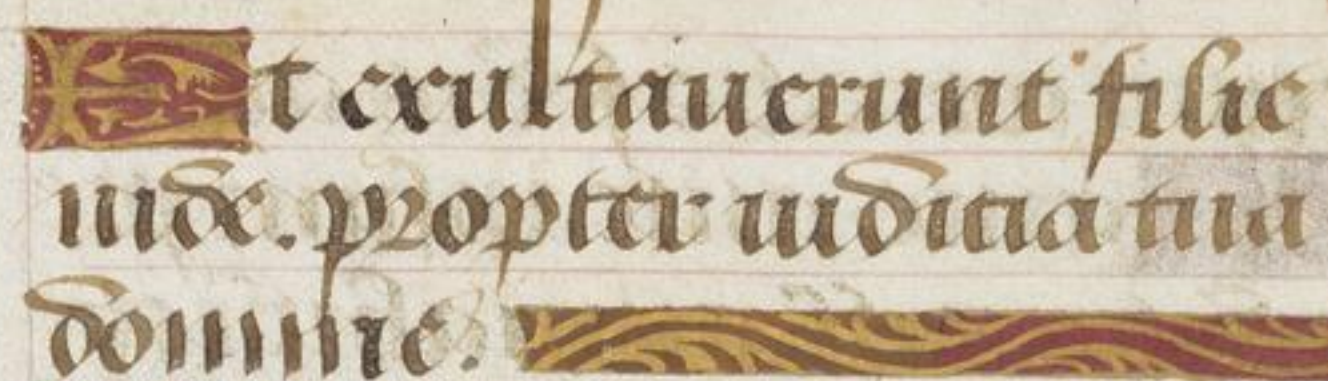 Et exultauerunt filie
iude. propter iudicia tua
domine.